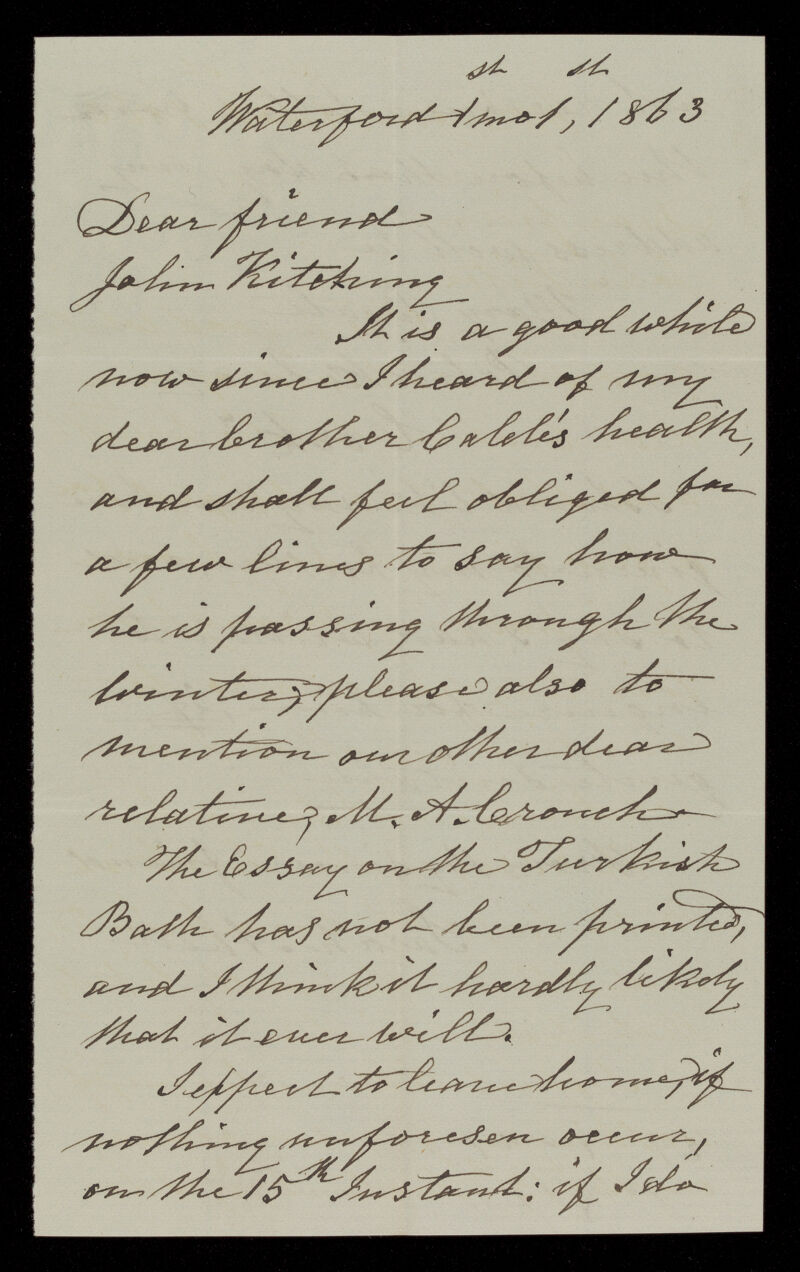 Waterford 1st mo 1st, 1863
Dear friend
John Kitching
It is a good while
now since I heard of my
dear brother Caleb's health,
and shall feel obliged for
a few lines to say how
he is passing through the
winter; please also to
mention our other dear
relative, M. A. Crouch
The Essay on the Turkish
Bath has not been printed,
and I think it hardly likely
that it ever will.
I expect to leave home, if
nothing unforesen occur,
on the 15th Instant: if I do